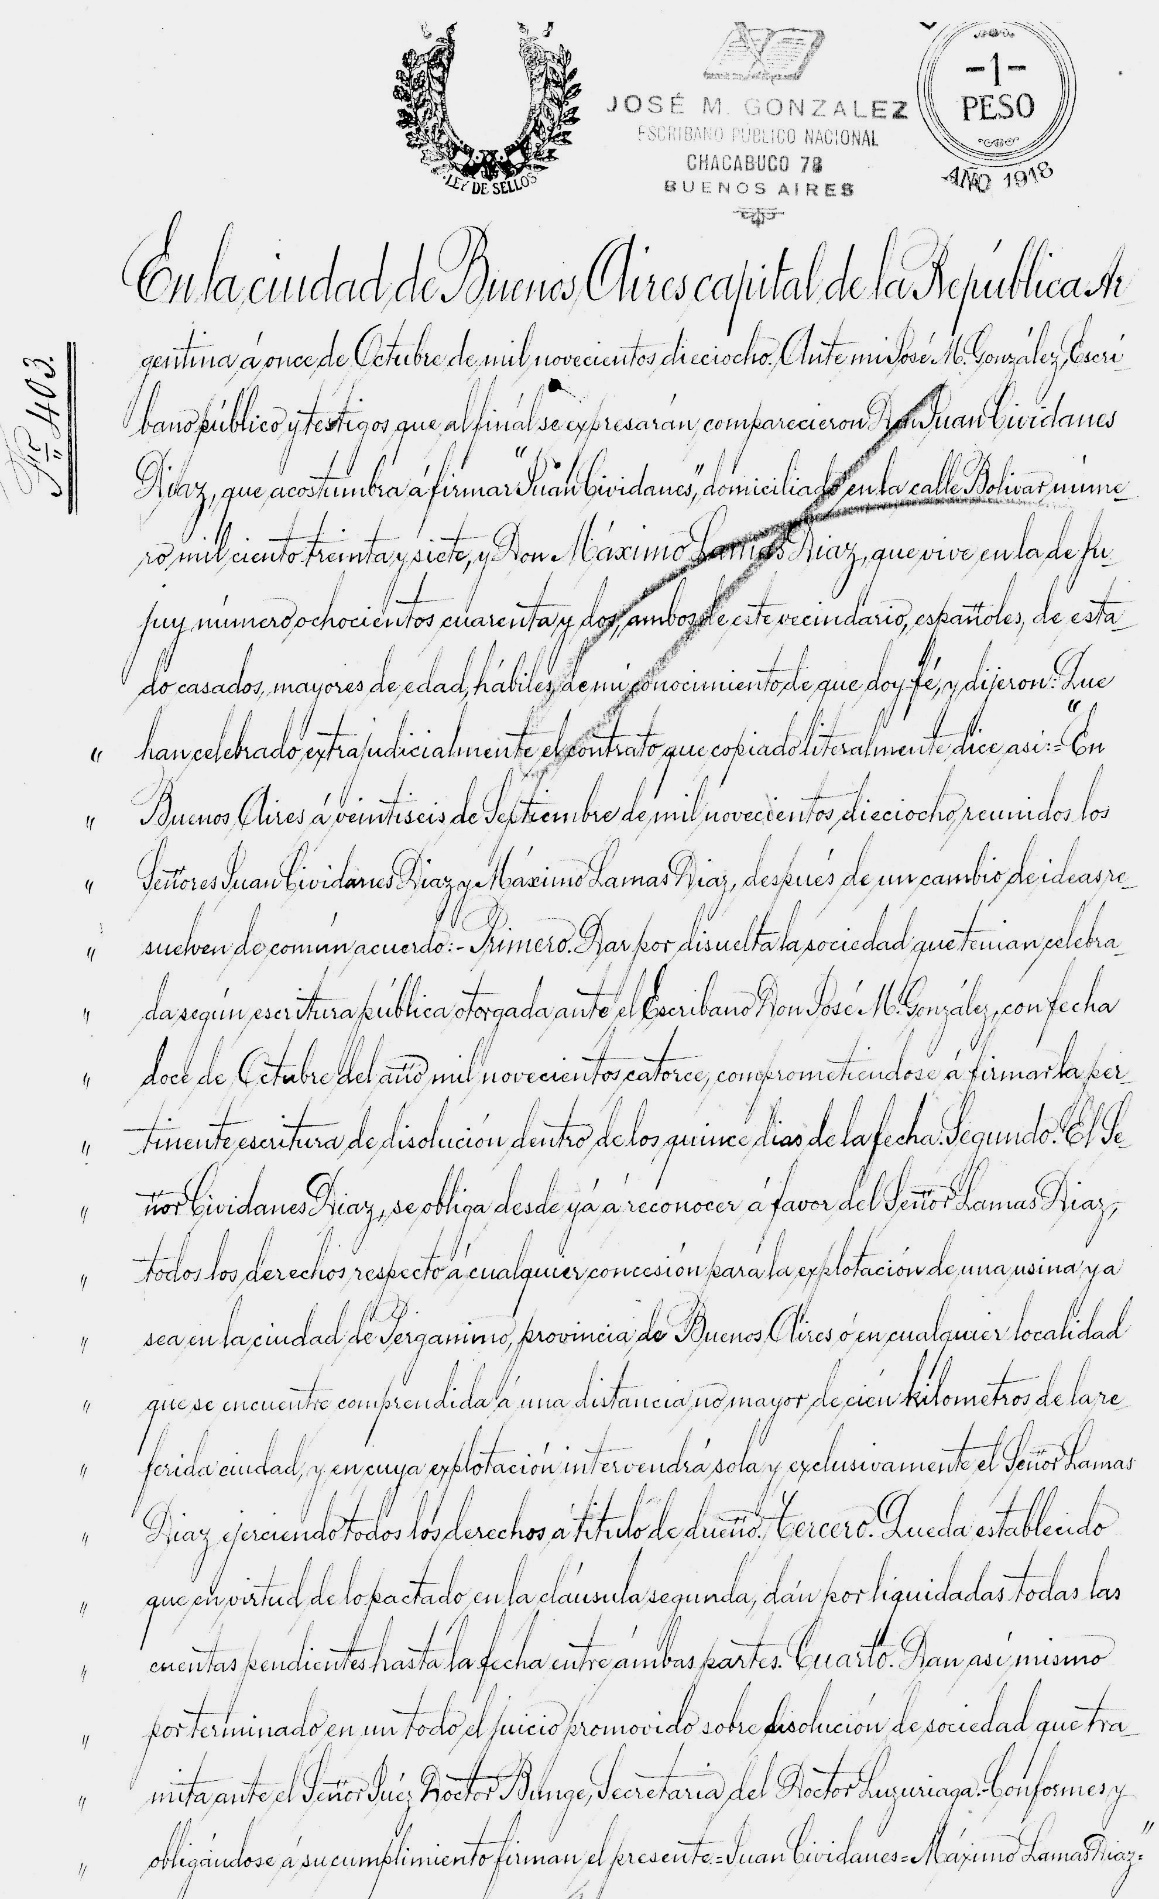 LEY DE SELLOS
JOSÉ M. GONZALEZ
ESCRIBANO PUBLICO NACIONAL
CHACABUCO 78
BUENOS AIRES
-1-
PESO
AÑO 1918
Nº 403.
En la ciudad de Buenos Aires capital de la República Ar
gentina á once de Octubre de mil novecientos dieciocho. Ante mi José M. González, Escri
bano público y testigos que al finál se expresarán, comparecieron Don Juan Cividanes
Diaz, que acostumbra á firmar "Juan Cividanes", domiciliado en la calle Bolivar núme-
ro mil ciento treinta y siete, y Don Máximo Lamas Diaz, que vive en la de Ju-
juy número ochocientos cuarenta y dos, ambos de este vecindario, españoles, de esta-
do casados, mayores de edad, hábiles, de mi conocimiento de que doy fé, y dijeron: Que
" han celebrado extrajudicialmente el contrato que copiado literalmente dice asi:= "En
" Buenos Aires á veintiseis de Septiembre de mil novecientos dieciocho, reunidos los
" Señores Juan Cividanes Diaz y Máximo Lamas Diaz, después de un cambio de ideas re-
" suelven de común acuerdo:- Primero. Dar por disuelta la sociedad que tenian celebra-
" da según escritura pública otorgada ante el Escribano Don José M. González, con fecha
" doce de Octubre del año mil novecientos catorce, comprometiendose á firmar la per-
" tinente escritura de disolución dentro de los quince dias de la fecha. Segundo. El Se-
" ñor Cividanes Diaz, se obliga desde yá á reconocer á favor del Señor Lamas Diaz,
" todos los derechos respecto á cualquier concesión para la explotación de una usina ya
" sea en la ciudad de Pergamino, provincia de Buenos Aires ó en cualquier localidad
" que se encuentre comprendida á una distancia no mayor de cien kilometros de la re
" ferida ciudad, y en cuya explotación intervendrá sola y exclusivamente el Señor Lamas
" Diaz ejerciendo todos los derechos á titulo de dueño. Tercero. Queda establecido
" que en virtud de lo pactado en la cláusula segunda, dán por liquidadas todas las
" cuentas pendientes hasta la fecha entre ámbas partes. Cuarto. Dan asi mismo
" por terminado en un todo el juicio promovido sobre disolución de sociedad que tra-
" mita ante el Señor Juéz Doctor Bunge, Secretaria del Doctor Luzuriaga. Conformes y
" obligándose á su cumplimiento firman el presente.= Juan Cividanes= Máximo Lamas Diaz="